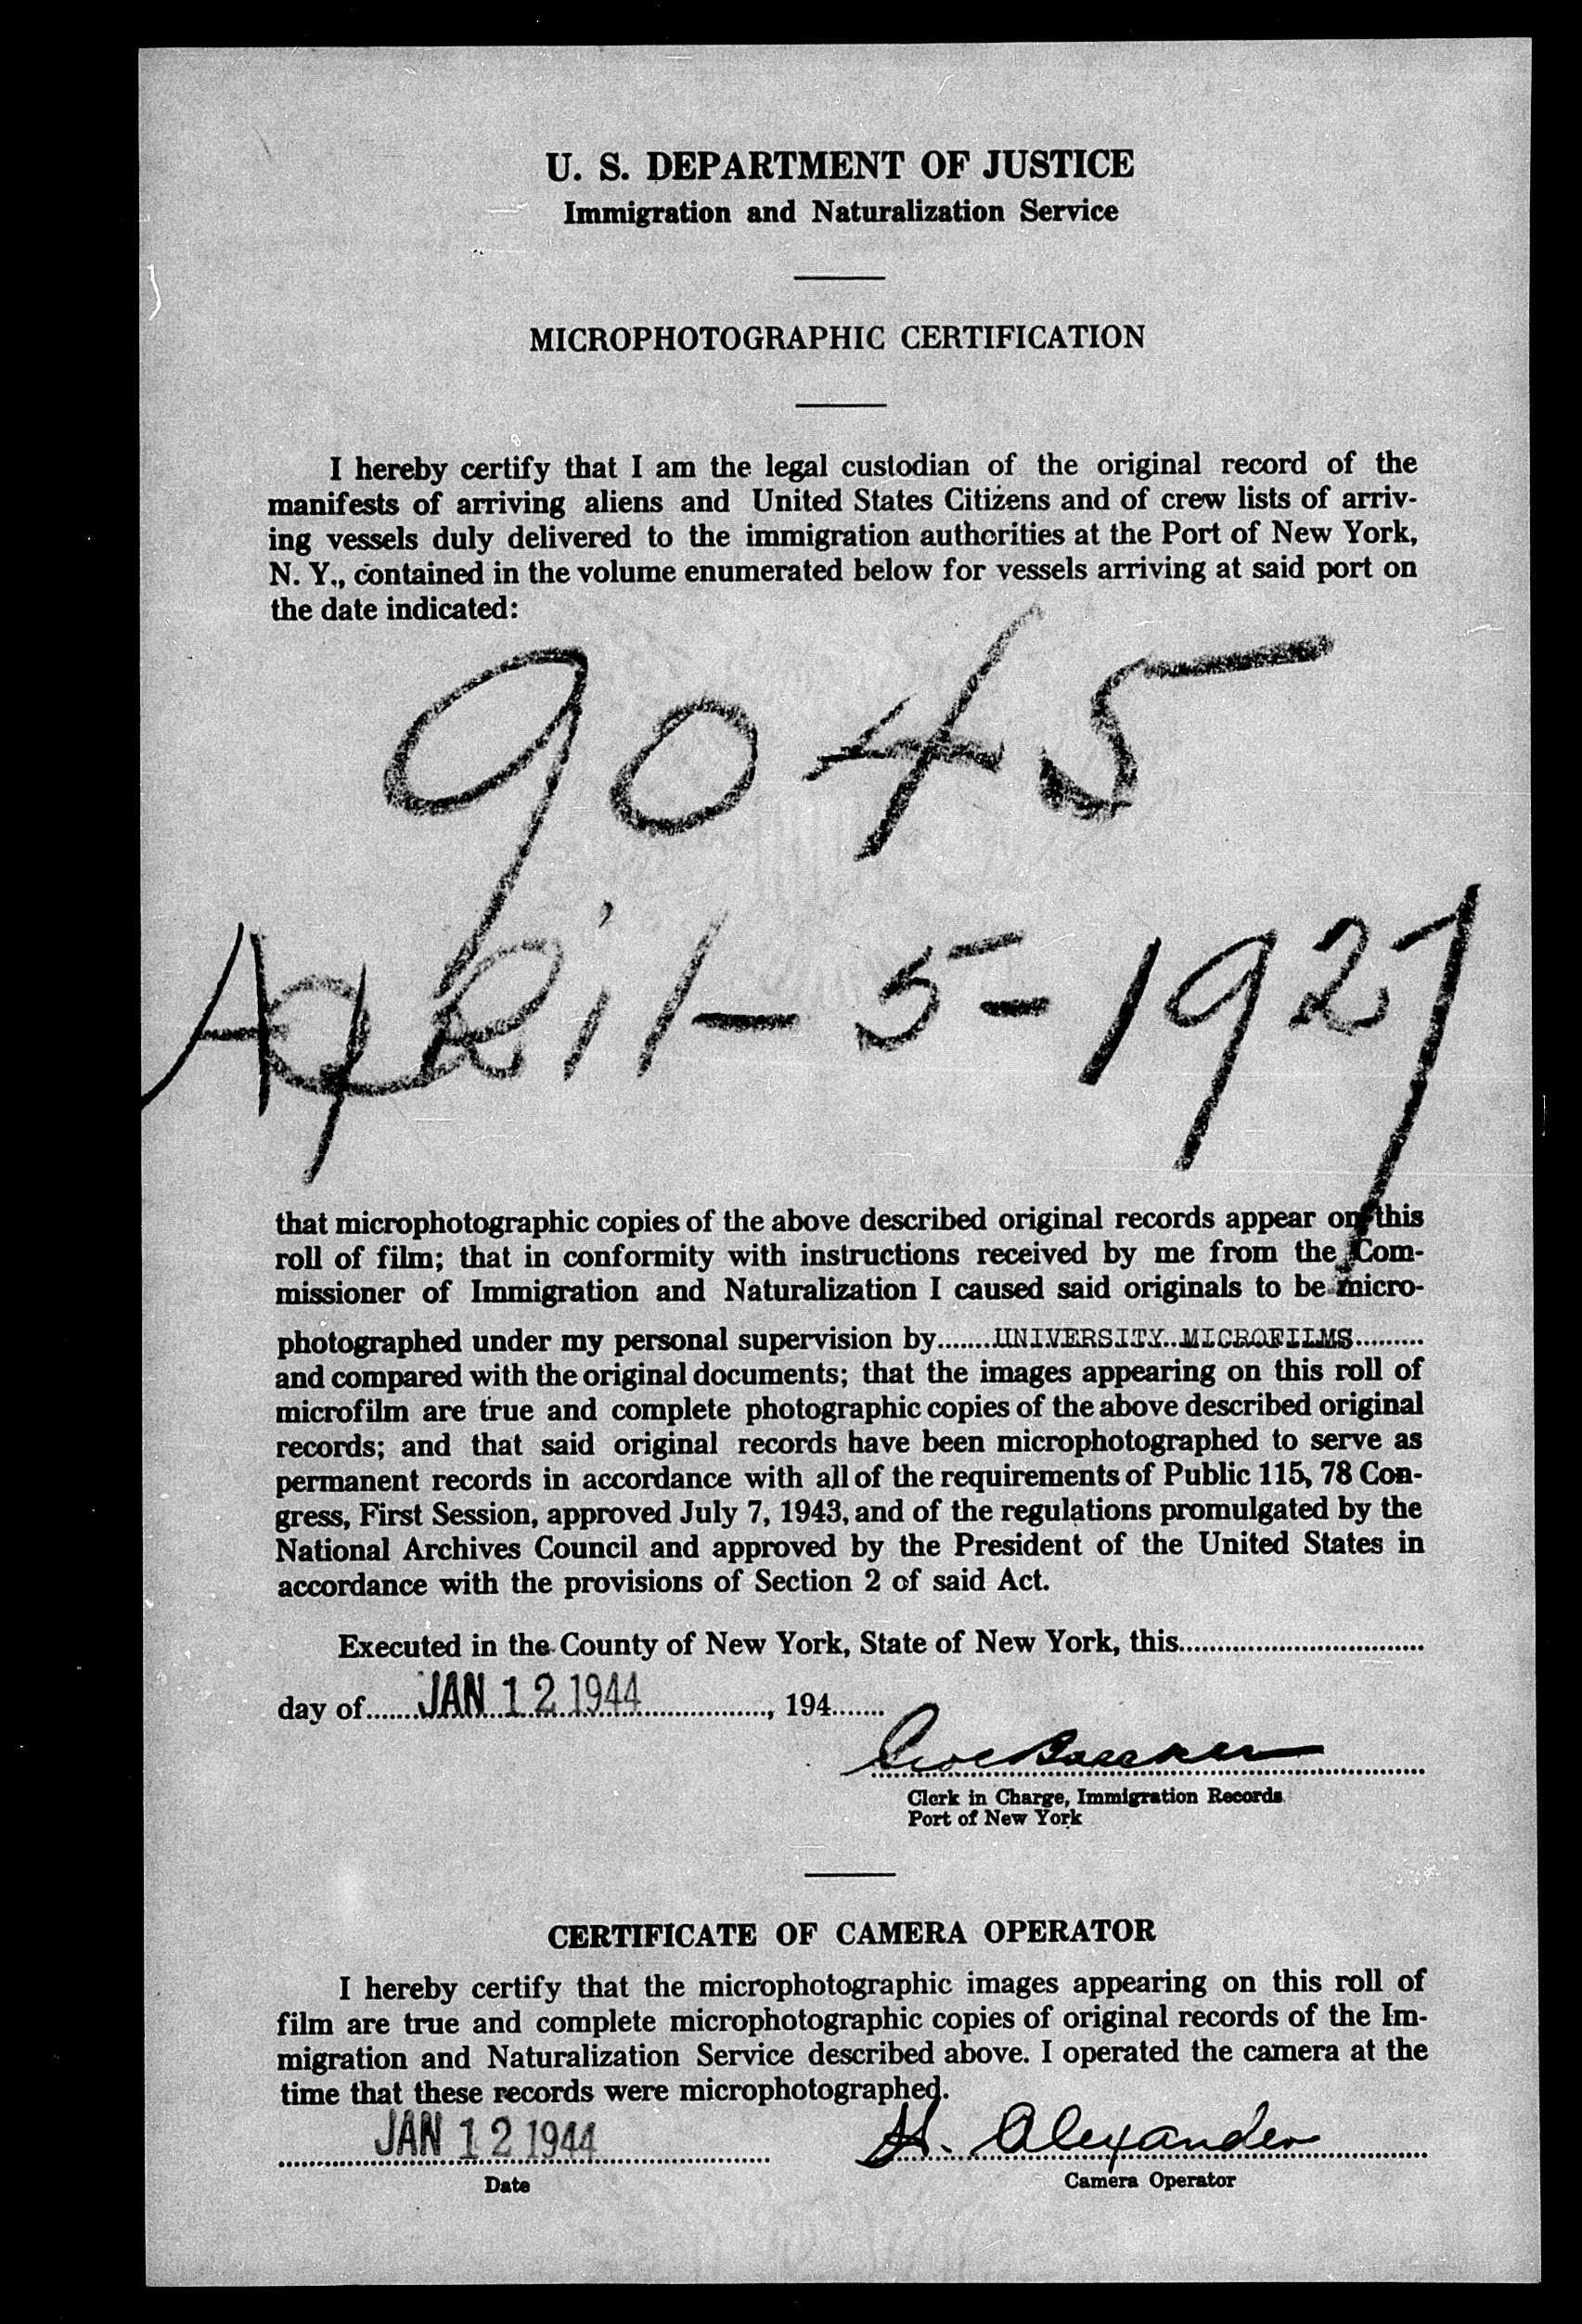 U. S. DEPARTMENT OF JUSTICE
Immigration and Naturalization Service
MICROPHOTOGRAPHIC CERTIFICATION
I hereby certify that I am the legal custodian of the original record of the
manifests of arriving aliens and United States Citizens and of crew lists of arriv-
ing vessels duly delivered to the immigration authorities at the Port of New York,
N. Y., contained in the volume enumerated below for vessels arriving at said port on
the date indicated:
9045
April - 5 - 1927
that microphotographic copies of the above described original records appear on this
roll of film; that in conformity with instructions received by me from the Com-
missioner of Immigration and Naturalization I caused said originals to be micro-
photographed under my personal supervision by.......UNIVERSITY..MICROFILMS.........
and compared with the original documents; that the images appearing on this roll of
microfilm are true and complete photographic copies of the above described original
records; and that said original records have been microphotographed to serve as
permanent records in accordance with all of the requirements of Public 115, 78 Con-
gress, First Session, approved July 7, 1943, and of the regulations promulgated by the
National Archives Council and approved by the President of the United States in
accordance with the provisions of Section 2 of said Act.
Executed in the County of New York, State of New York, this................................
day of.......JAN 12 1944................., 194.......
Clerk in Charge, Immigration Records
Port of New York
CERTIFICATE OF CAMERA OPERATOR
I hereby certify that the microphotographic images appearing on this roll of
film are true and complete microphotographic copies of original records of the Im-
migration and Naturalization Service described above. I operated the camera at the
time that these records were microphotographed.
JAN 12 1944 H. Alexander
Date Camera Operator